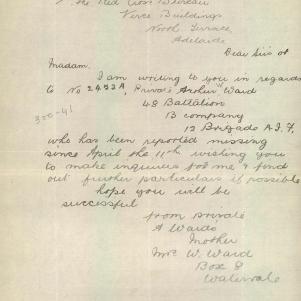 the Red Cross Bureau
Verco Buildings
North Terrace
Adelaide
Dear Sir or
Madam.
I am writing to you in regards
to No 2453A Private Arthur Ward
300-41
48 Battalion
B company
12 Brigade A.I.F.
who has been reported missing
since April the 11th wishing you
to make inquiries for me & find
out further particulars if possible
hope you will be
successful
from private
A Wards
Mother
Mrs W. Ward
Box 8
Watervale